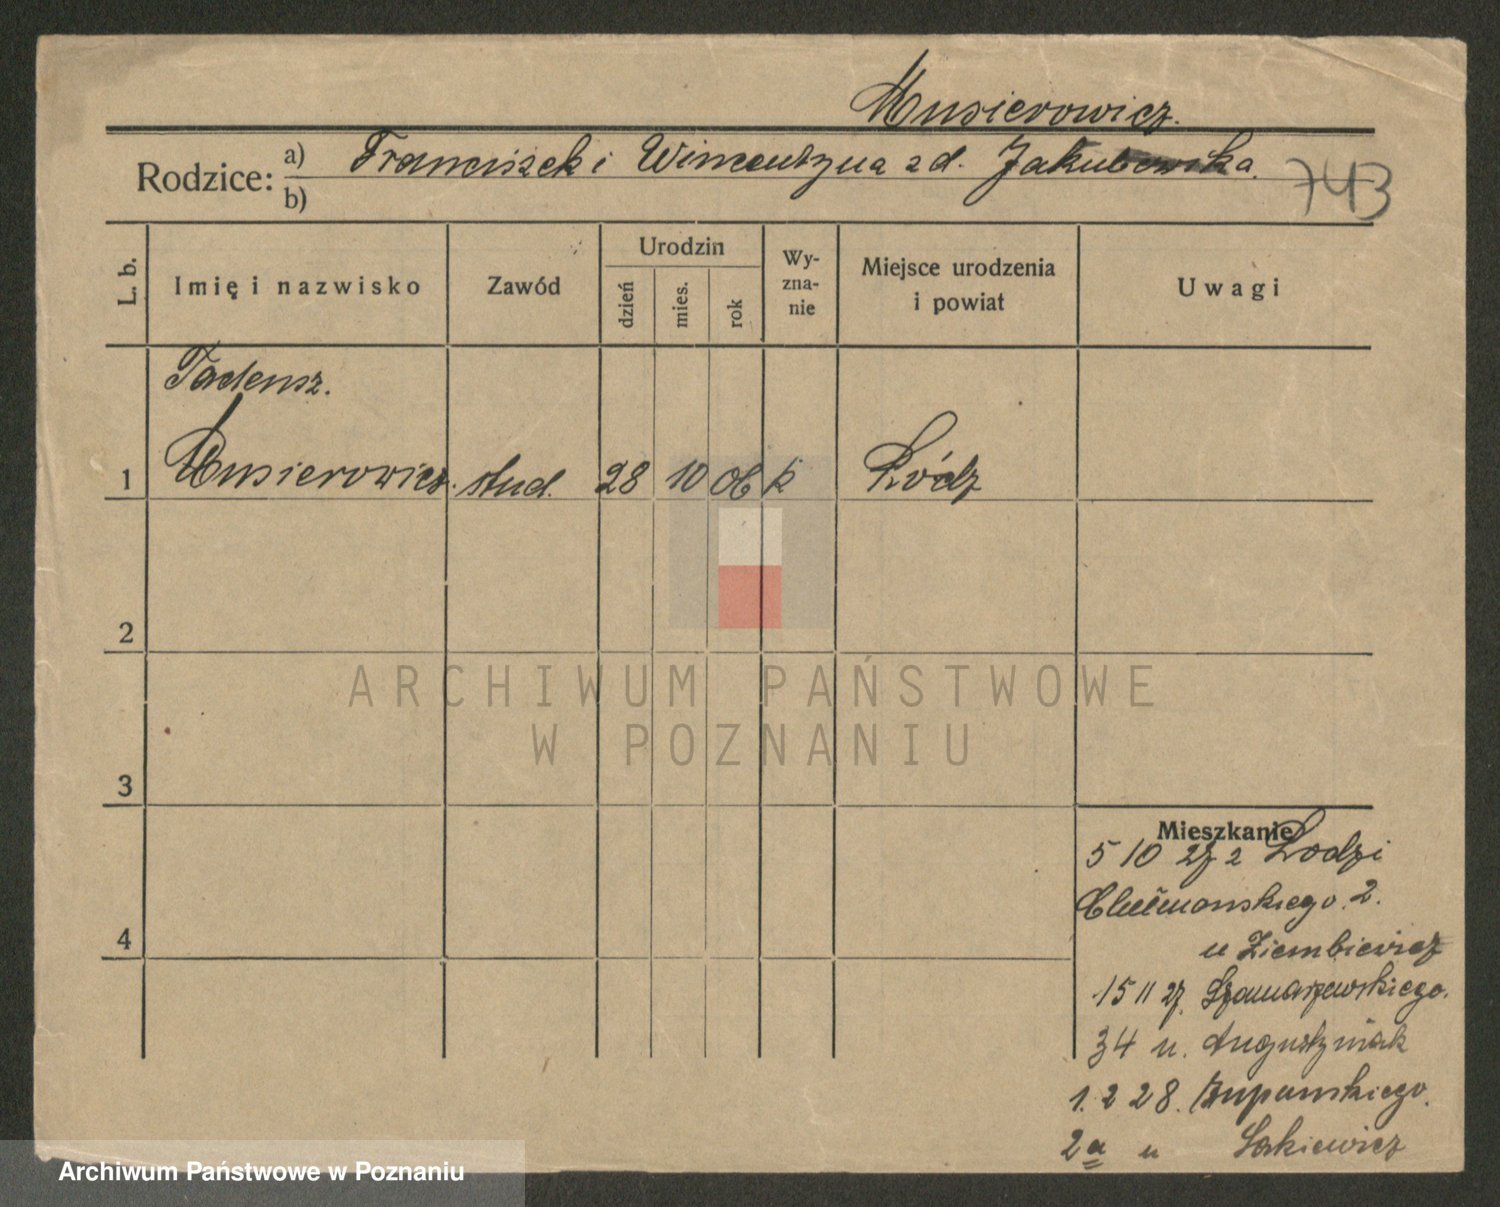 Musierowicz.
Rodzice: a) Franciszek i Wincentyna z d. Jakubowska.
b)
743
L. b.
Imię i nazwisko
Zawód
Urodzin
dzień
mies.
rok
Wy-
zna-
nie
Miejsce urodzenia
i powiat
Uwagi
Tadeusz.
1 Musierowicz. stud. 28 10 06 k Łódz
2
3
4
Mieszkanie
5 10 27 z Łodzi
Chełmonskiego. 2.
u Ziembiewicz
15 11 27. Szamarzewskiego.
34 u. Augustyniak
1. 2 28. Żupanskiego.
2a u
ARCHIWUM PAŃSTWOWE
W POZNANIU
Archiwum Państwowe w Poznaniu